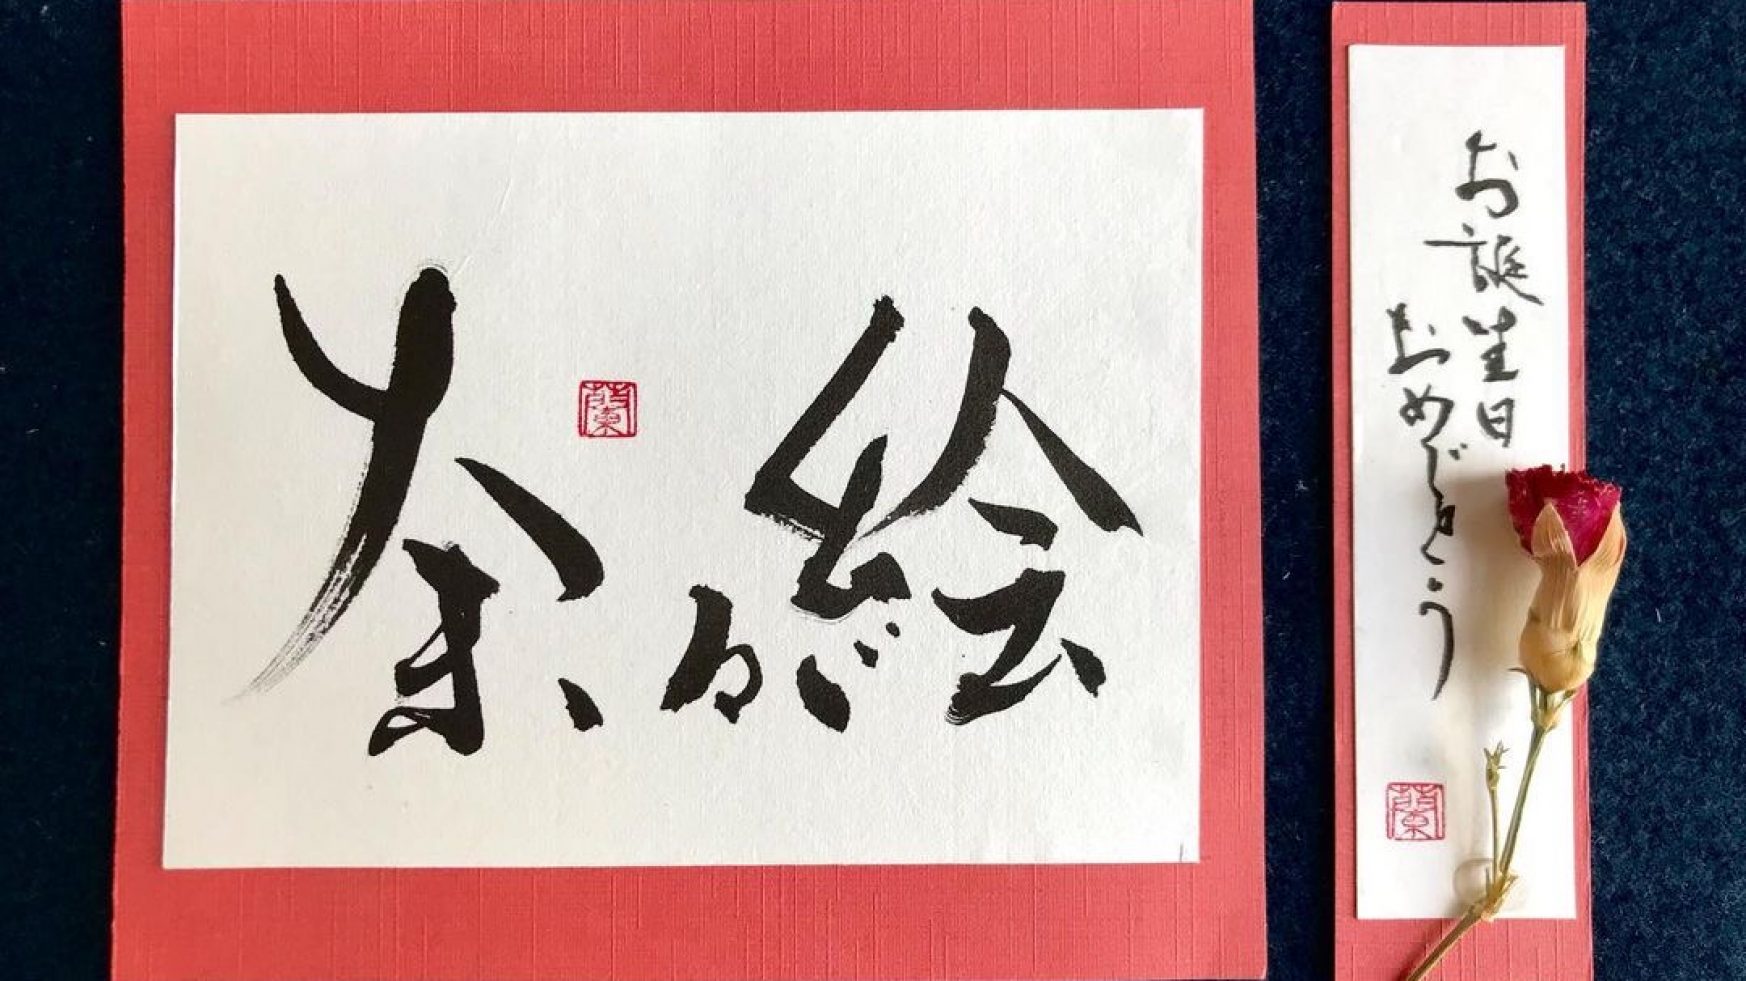 奈絵
蘭
お誕生日
おめでとう
蘭